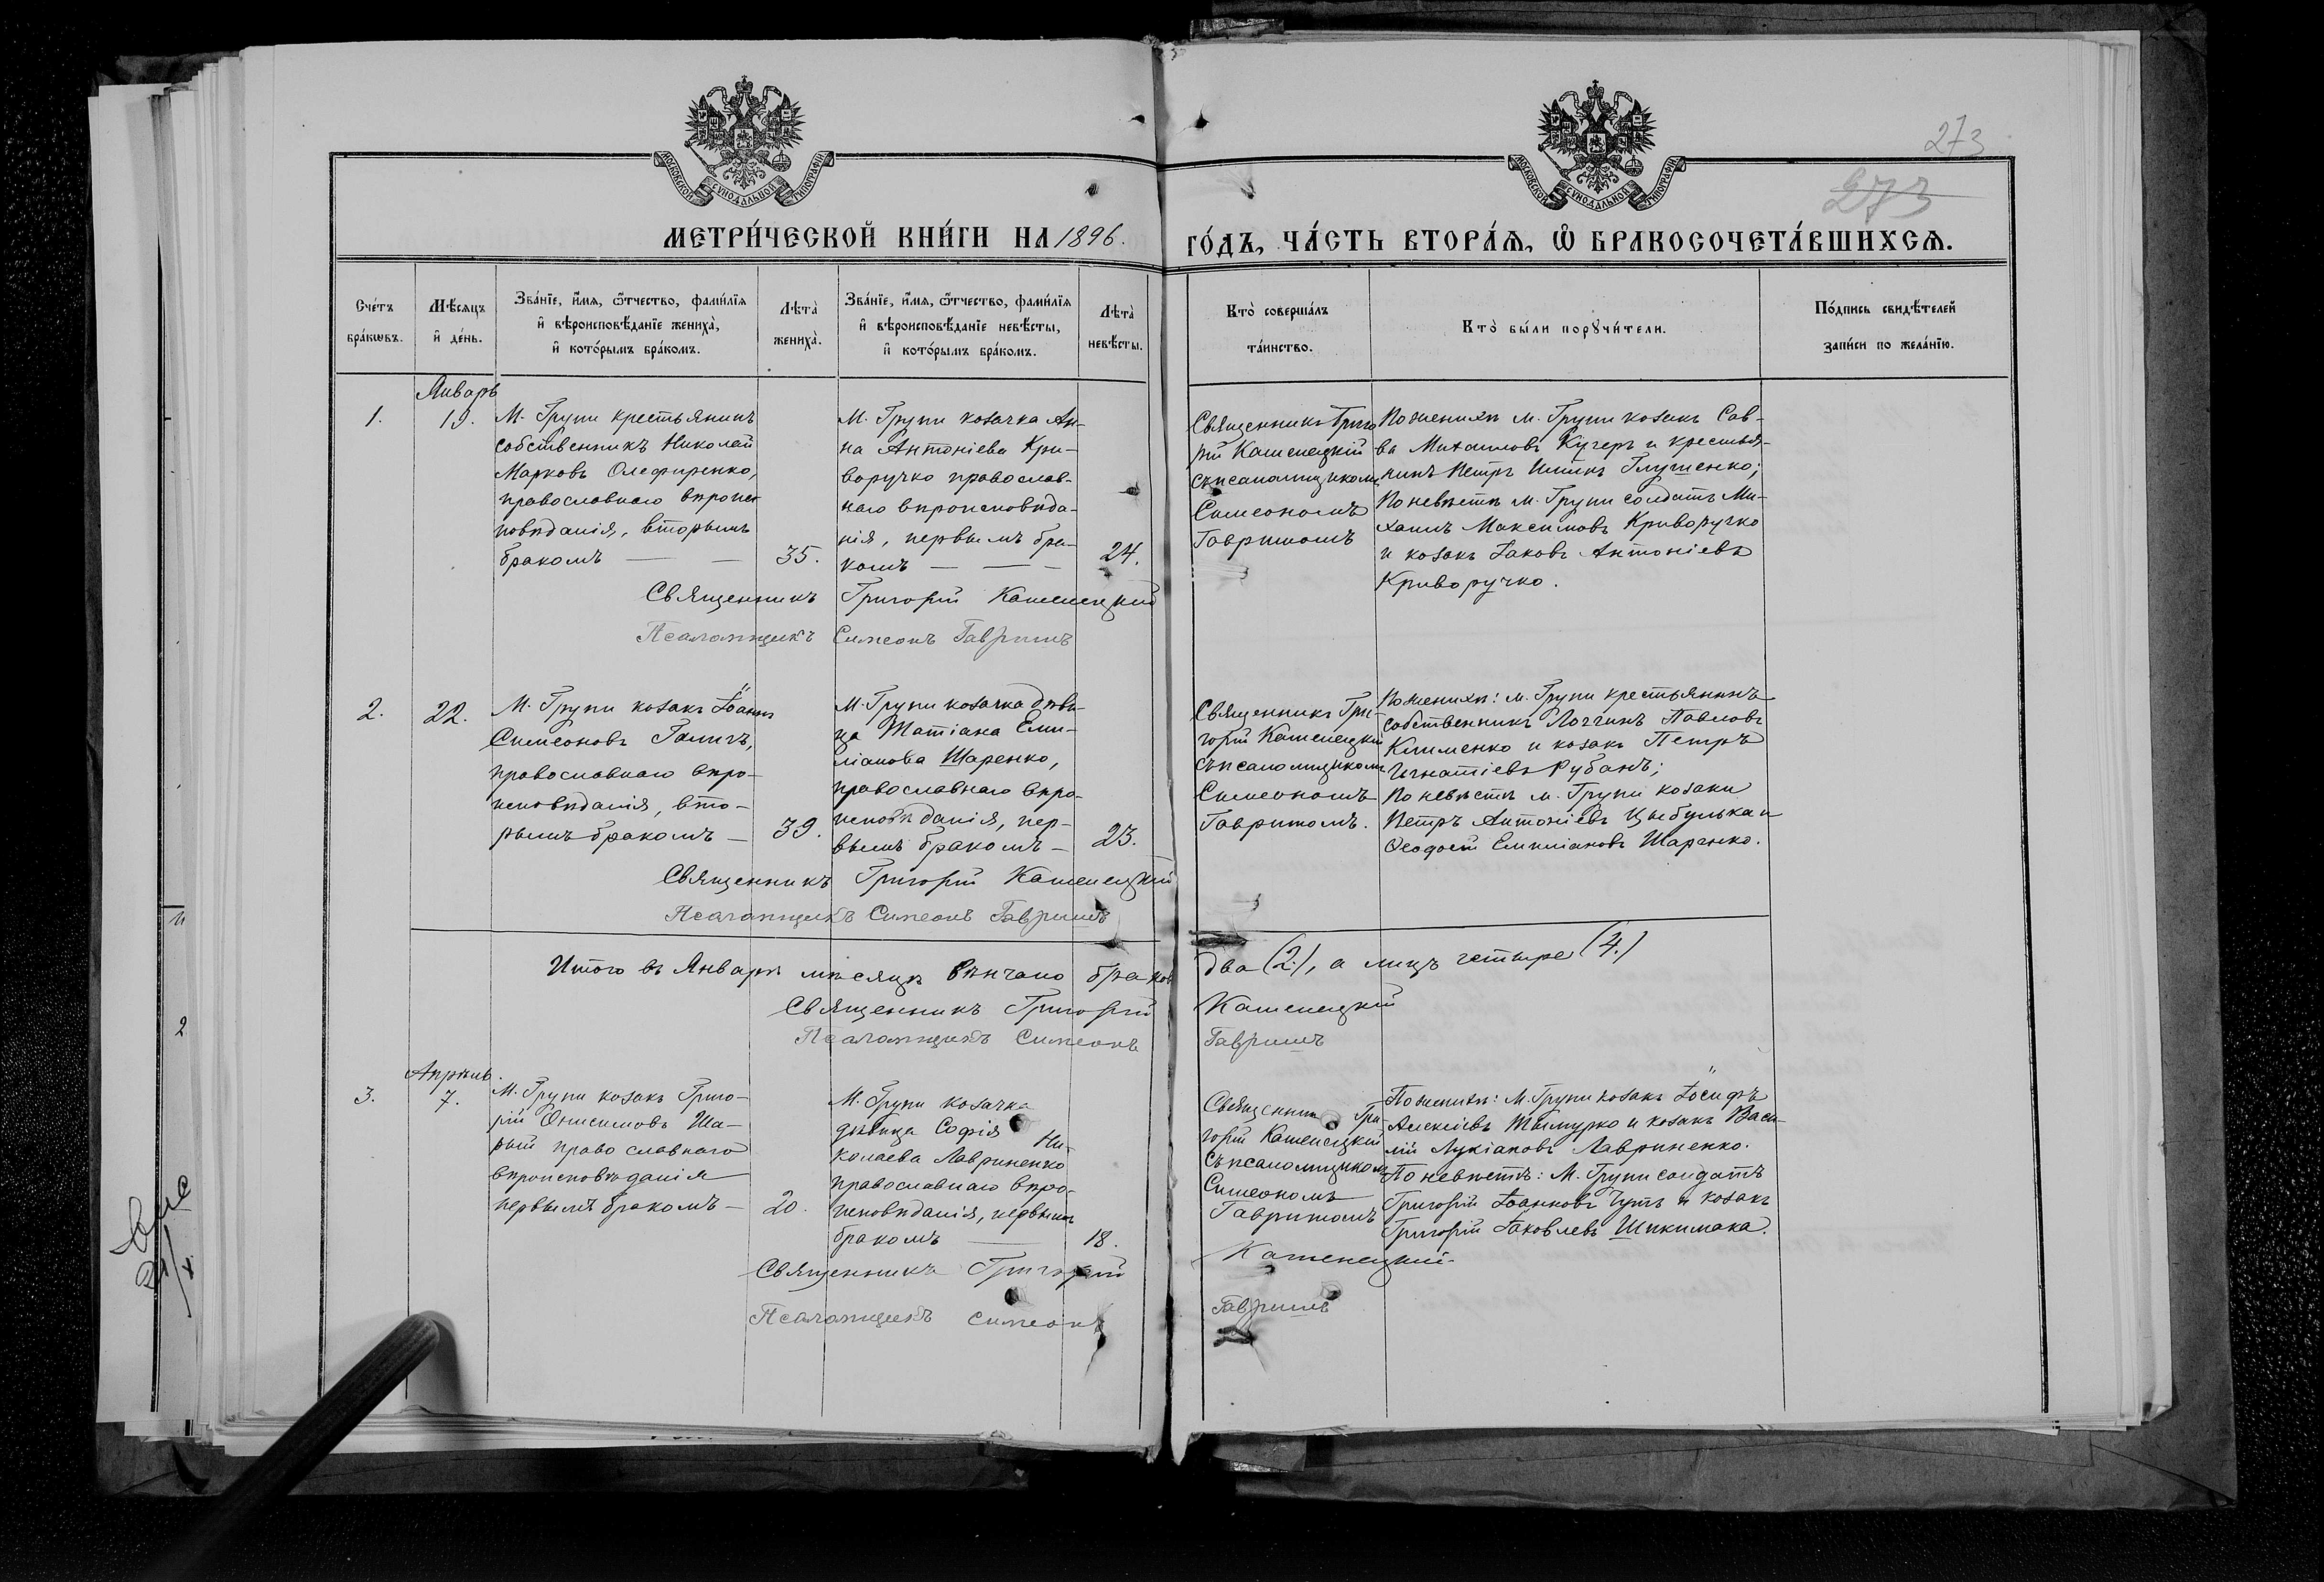 МОСКОВСКОЙ СѴНОДАЛЬНОЙ ТИПОГРАФІИ
МОСКОВСКОЙ СѴНОДАЛЬНОЙ ТИПОГРАФІИ
273
273
МЕТРИ́ЧЕСКОЙ КНИ́ГИ НА 1896.
ГО́ДЪ, ЧА́СТЬ ВТОРА́Ѧ, Ѡ БРАКОСОЧЕТА́ВШИХСѦ.
Сче́тъ бра́кѡвъ.
Мѣ́сяцъ и де́нь.
Зва́нїе, и́мѧ, ѻ҆́тчество, фами́лїѧ и вѣроисповѣ́данїе жениха̀, и кото́рымъ бра́комъ.
Лѣта̀ жениха̀.
Зва́нїе, и́мѧ, ѻ҆́тчество, фами́лїѧ и вѣроисповѣ́данїе невѣ́сты, и кото́рымъ бра́комъ.
Лѣта̀ невѣ́сты.
Кто̀ соверша́лъ та́инство.
Кто̀ бы́ли порꙋчи́тели.
По́дпись свидѣ́телей за́писи по жела́нїю.
Январь
1.
19.
М. Груни крестьянинъ
собственникъ Николай
Марковъ Олефиренко,
православнаго вѣроис
повѣданія, вторымъ
бракомъ — —
35.
М. Груни козачка Ан-
на Антоніева Кри-
воручко православ-
наго вѣроисповѣда-
нія, первымъ бра-
комъ — — —
24.
Священникъ Григо
рій Каменецкій
съ псаломщикомъ
Симеономъ
Гавришомъ
По женихѣ м. Груни козакъ Сав-
ва Михаиловъ Кучеръ и крестья-
нинъ Петръ Глушенко;
По невѣстѣ м. Груни солдатъ Ми-
хаилъ Максимовъ Криворучко
и козакъ Іаковъ Антоніевъ
Криворучко.
Священникъ Григорій Каменецкій
Псаломщикъ Симеонъ Гавришъ
2.
22.
М. Груни козакъ Іоаннъ
Симеоновъ Галичъ,
православнаго вѣро-
исповѣданія, вто-
рымъ бракомъ —
39.
М. Груни козачка дѣви-
ца Татіана Еми-
ліанова Шаренко,
православнаго вѣро-
исповѣданія, пер-
вымъ бракомъ —
23.
Священникъ Гри-
горій Каменецкій
съ псаломщикомъ
Симеономъ
Гавришомъ.
По женихѣ: м. Груни крестьянинъ
собственникъ Логгинъ Павловъ
Клименко и козакъ Петръ
Игнатіевъ Рубанъ;
По невѣстѣ м. Груни козаки
Петръ Антоніевъ Цыбулька и
Ѳеодосій Емиліановъ Шаренко.
Священникъ Григорій Каменецкій
Псаломщикъ Симеонъ Гавришъ
Итого въ Январѣ мѣсяцѣ вѣнчано браковъ два (2.), а лицъ четыре (4.)
Священникъ Григорій Каменецкій
Псаломщикъ Симеонъ Гавришъ
Апрѣль.
3.
7.
М. Груни козакъ Григо-
рій Онисимовъ Ша-
рый православнаго
вѣроисповѣданія
первымъ бракомъ —
20.
М. Груни козачка
дѣвица Софія Ни-
колаева Лавриненко
православнаго вѣро-
исповѣданія, первымъ
бракомъ —
18.
Священник Гри-
горій Каменецкій
съ псаломщикомъ
Симеономъ
Гавришомъ
По женихѣ: М. Груни козакъ Іосифъ
Алексіевъ и козакъ Васи-
лій Лукіановъ Лавриненко.
По невѣстѣ: М. Груни солдатъ
Григорій Іоанновъ Чутъ и козакъ
Григорій Іаковлевъ
Священникъ Григорій Каменецкій
Псаломщикъ Симеонъ Гавришъ
2